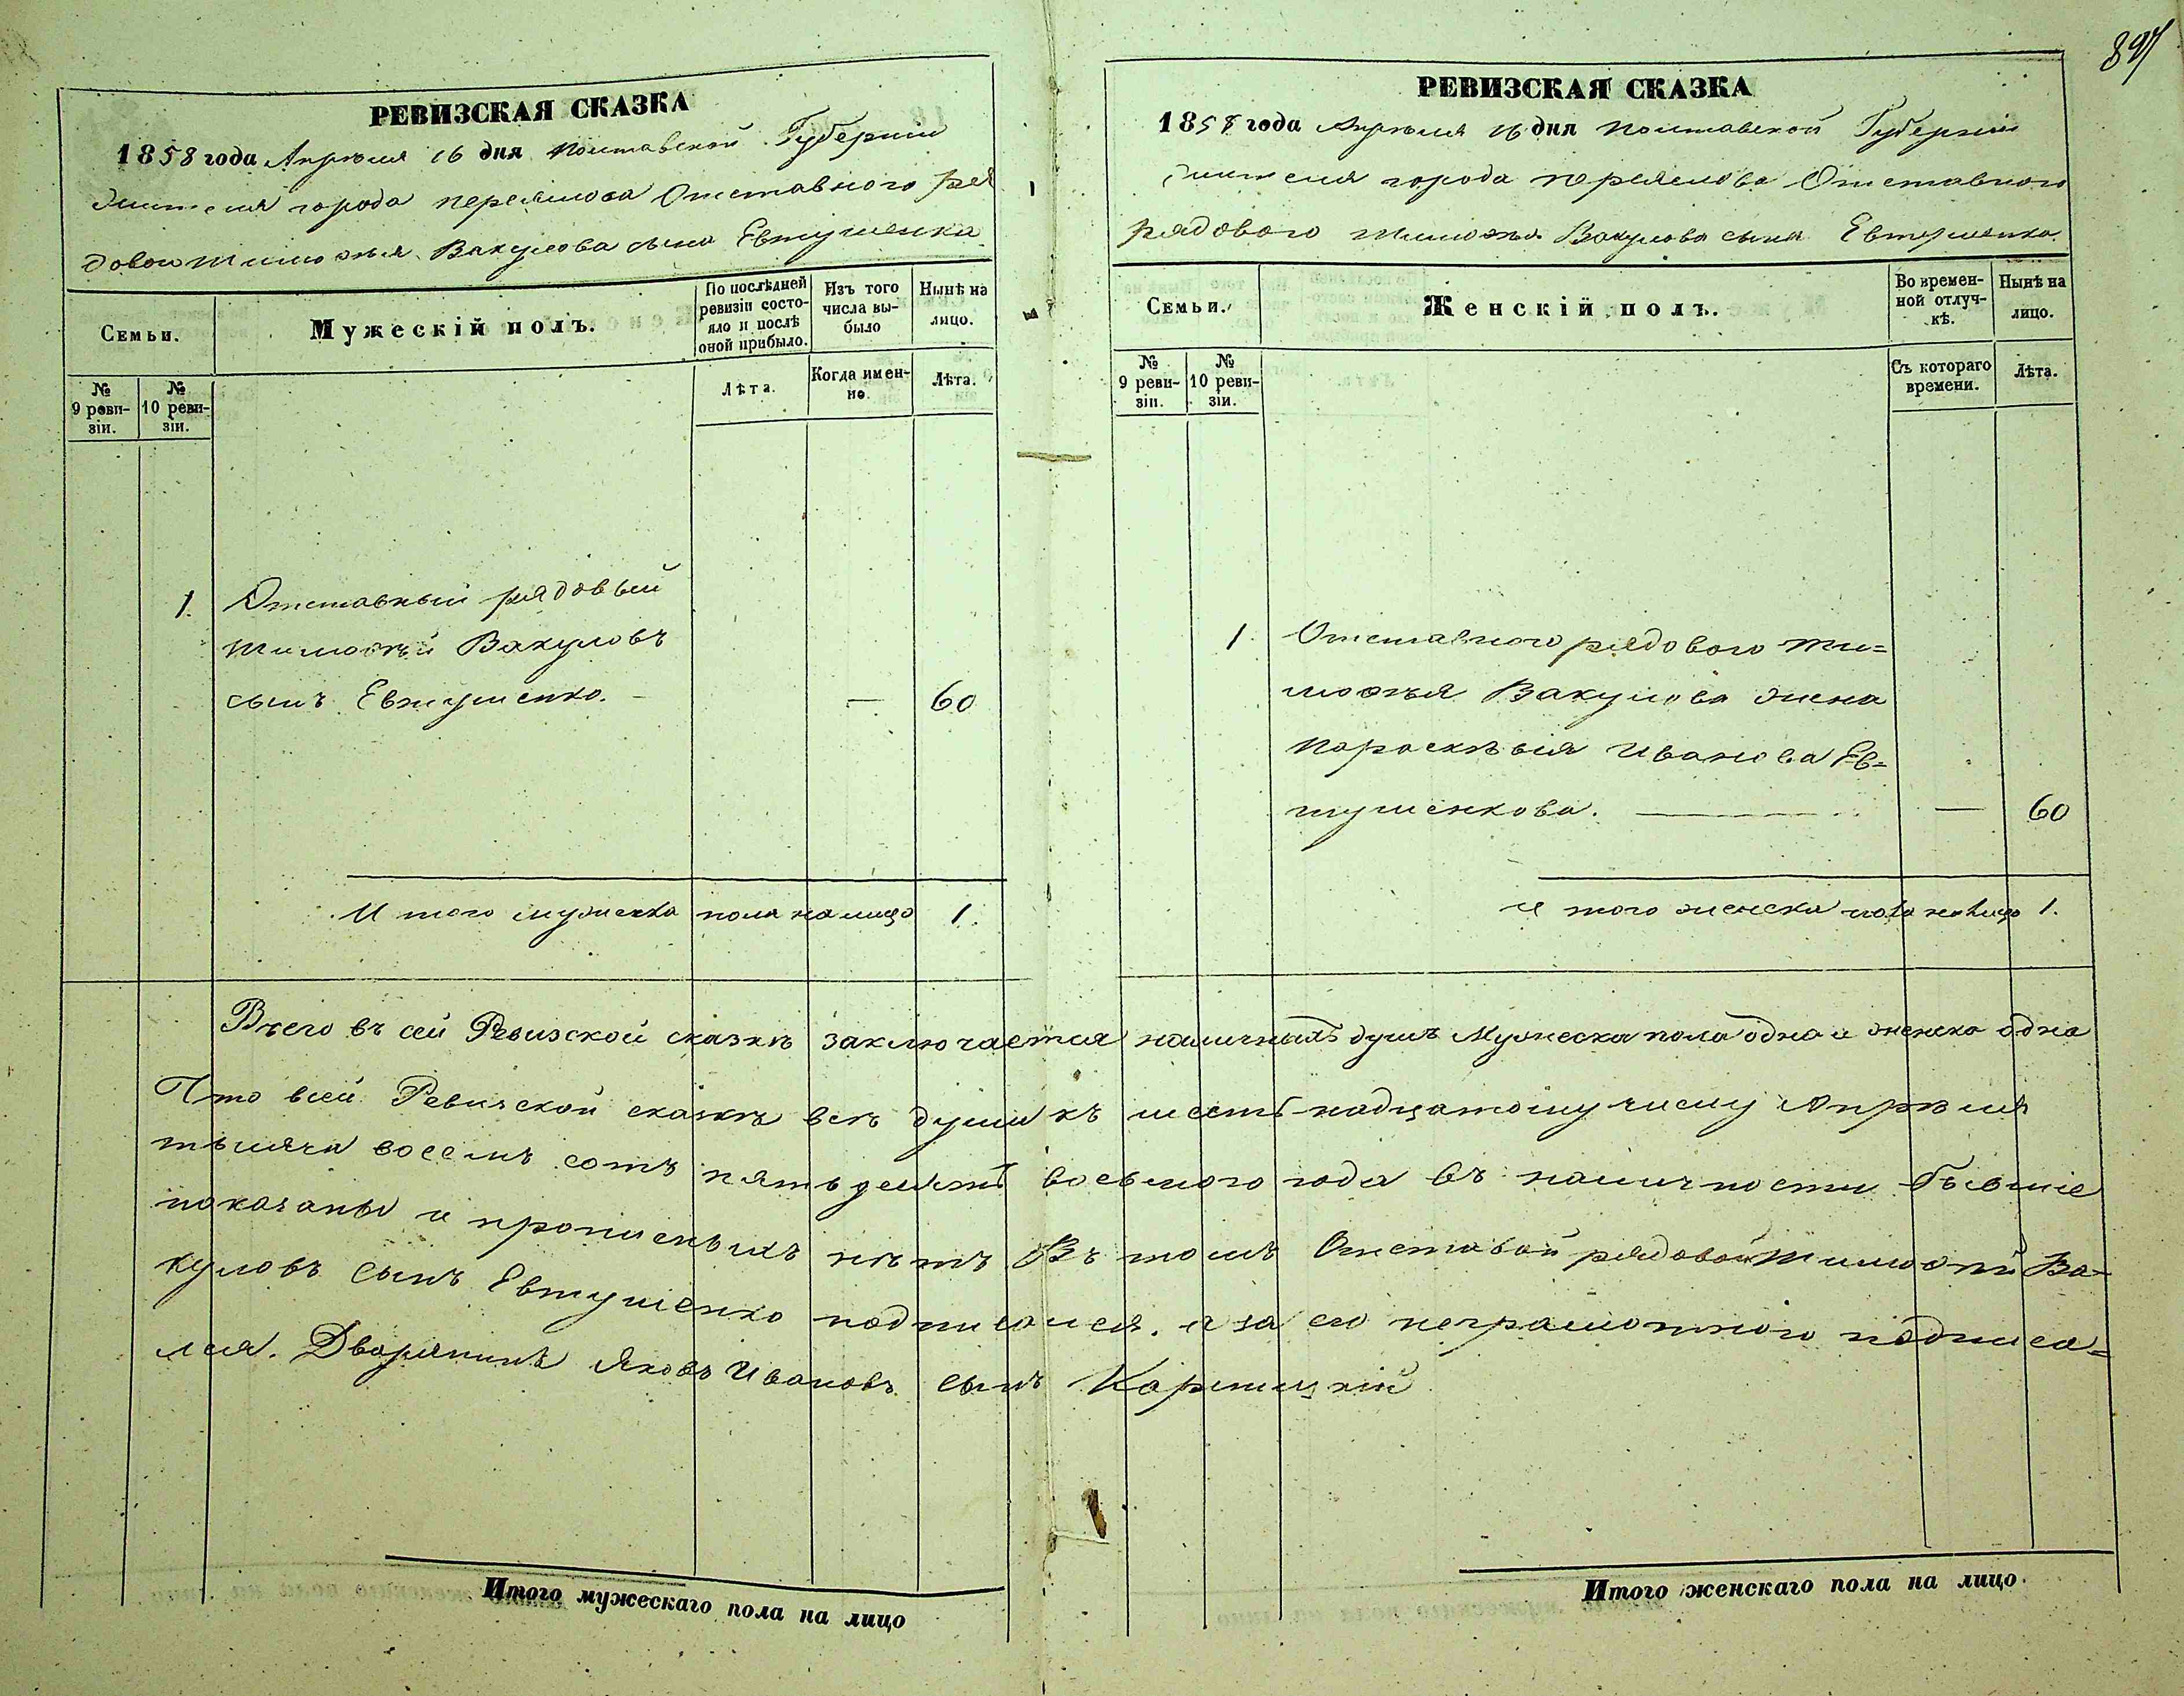 897
РЕВИЗСКАЯ СКАЗКА
1858 года Апрѣля 16 дня Полтавской Губерніи
жителя города переяслова Отставного ря
довои тимофѣя Вакулова сына Евтушенка
Семьи.
Мужескій полъ.
По послѣдней ревизіи состояло и послѣ оной прибыло.
Изъ того числа выбыло
Нынѣ на лицо.
№ 9 ревизіи.
№ 10 ревизіи.
Лѣта.
Когда именно.
Лѣта.
1. Отставный рядовый
тимофѣй Вакуловъ
сынъ Евтушенко. — — 60
И того мужеска пола на лицо 1.
РЕВИЗСКАЯ СКАЗКА
1858 года Апрѣля 16 дня полтавской Губерніи
жителя города переяслова Отставного
рядового тимофѣя Вакулова сына Евтушенка.
Семьи.
Женскій полъ.
Во временной отлучкѣ.
Нынѣ на лицо.
№ 9 ревизіи.
№ 10 ревизіи.
Съ котораго времени.
Лѣта.
1. Отставного рядового ти=
мофѣя Вакулова жена
параскѣвія Иванова Ев=
тушенкова. — — 60
и того женска пола на лицо 1.
Всего въ сей Ревизской сказкѣ заключается наличныхъ душъ Мужеска пола одна и женска одна
Что всей Ревизской сказкѣ всѣ души къ шестьнадцатому числу Апрѣля
тысяча восемъ сотъ пятьдесятъ восьмого года въ наличности бывшіе
показаны и прописныхъ нѣтъ Въ томъ Отставой рядовой Тимофѣй Ва=
куловъ сынъ Евтушенко подписался. а за его неграмотного подписа=
лся. Дворянинъ Яковъ Ивановъ сынъ
Итого мужескаго пола на лицо
Итого женскаго пола на лицо.